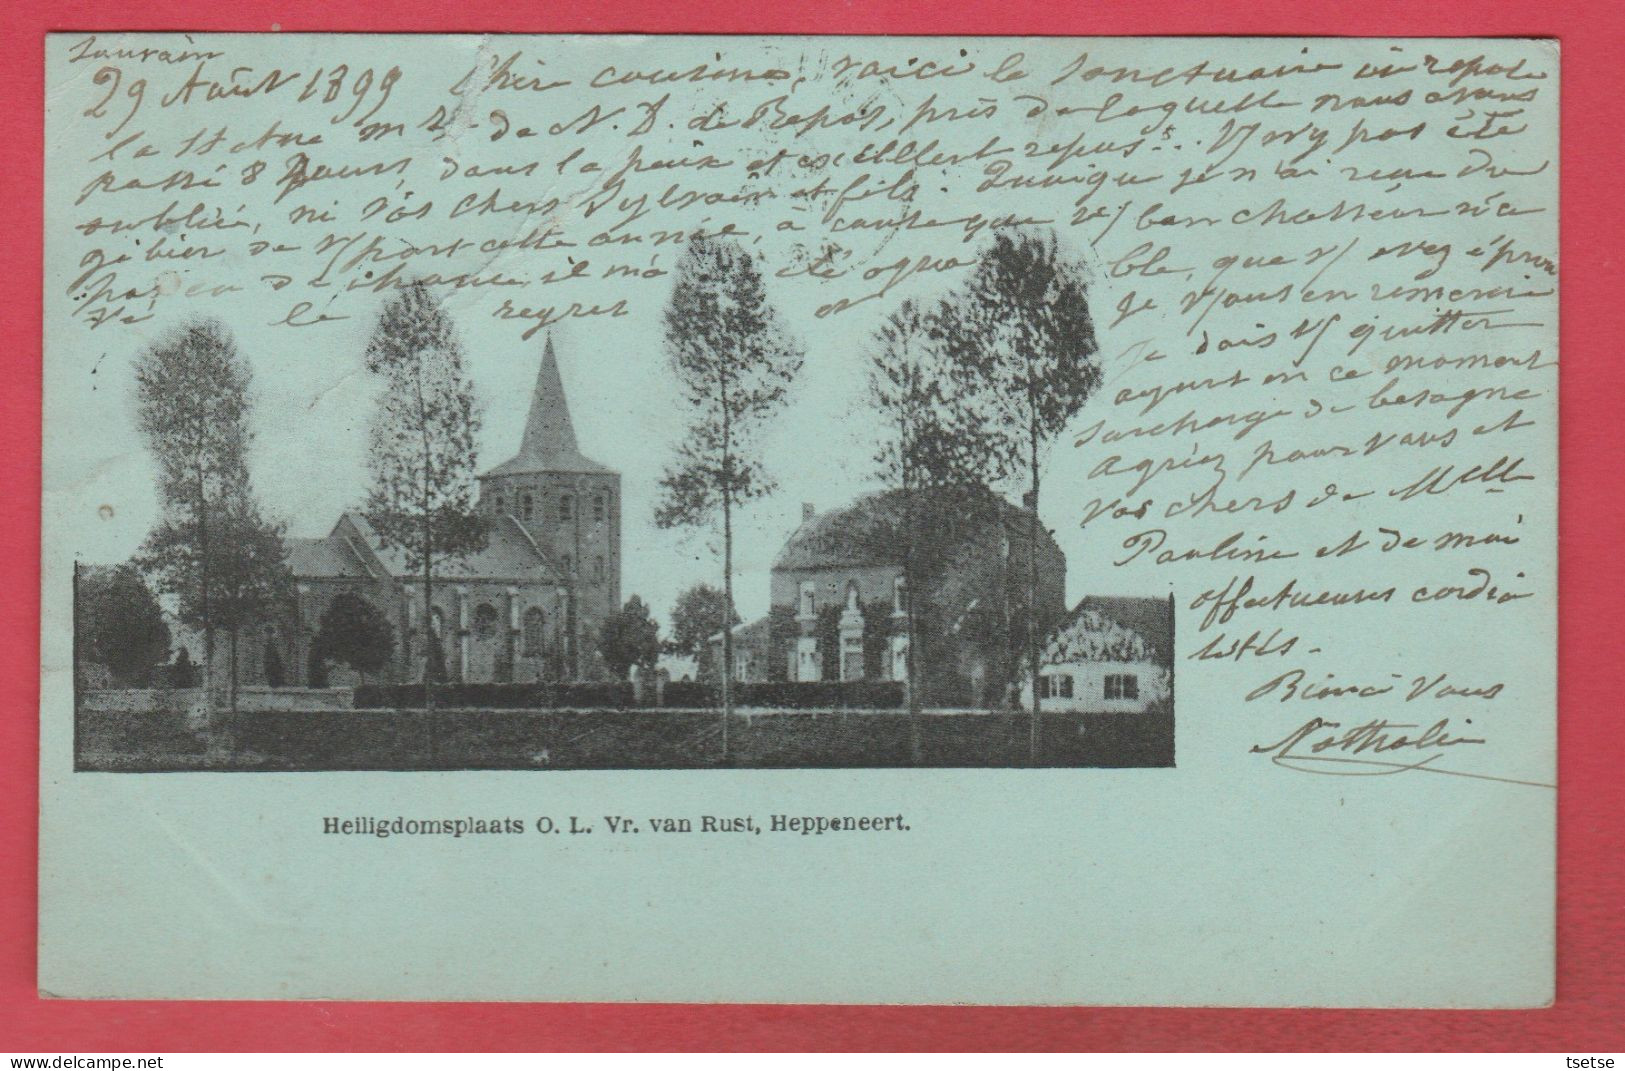 Louvain
29 Août 1899 Chère cousine, voici le Sanctuaire où repose
la statue de N. D. de Repos, près de laquelle nous avons
passé 8 jours, dans la paix et excellent repos... V/ n'y pas été
oubliée, ni vos chers Sylvain et fils. Quoique je n'ai reçu du
gibier de V/ part cette année, à cause que V/ bon chasseur n'a
pas eu de chance, il m'a été agréa ble, que V/ avez éprou
vé le regret et je Vous en remercie
Je dois V/ quitter
ayant en ce moment
surcharge de besogne
Agréez pour Vous et
Vos chers de Melle
Pauline et de moi
affectueuses cordia
lités.
Vous
Nathalie
Heiligdomsplaats O. L. Vr. van Rust, Heppeneert.
tsetse
delcampe.net